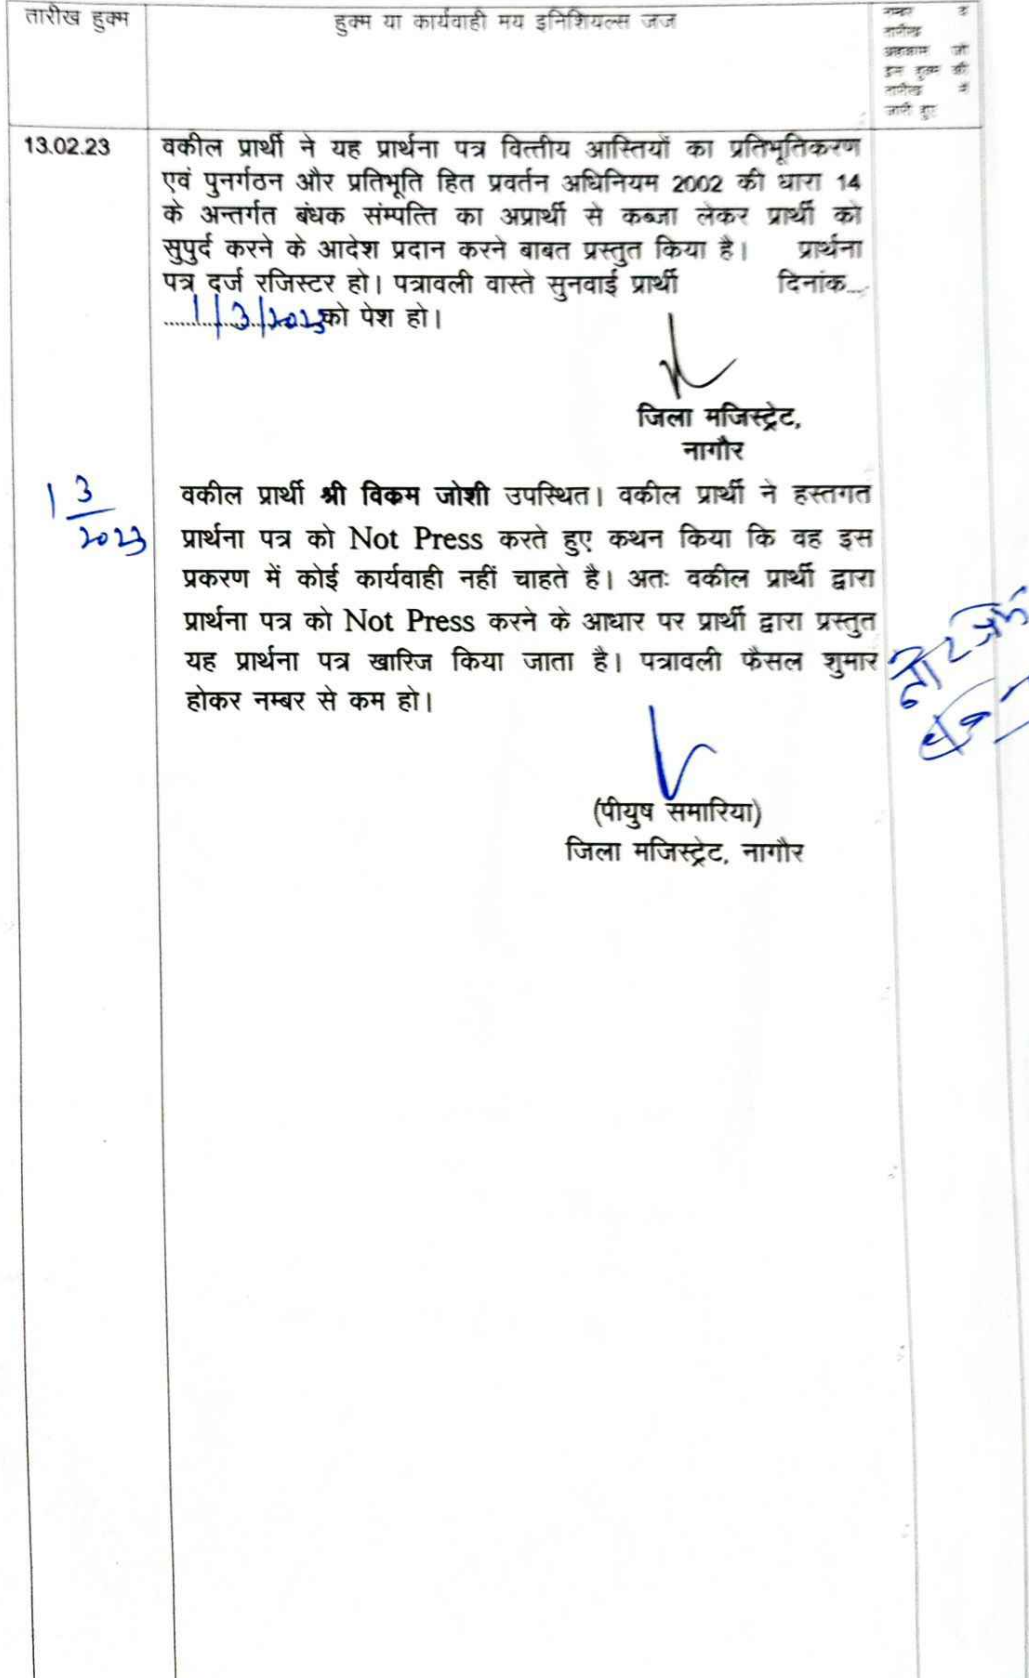 तारीख हुक्म
हुक्म या कार्यवाही मय इनिशियल्स जज
नम्बर व
तारीख
अहकाम जो
इस हुक्म की
तारीख में
जारी हुए
13.02.23
वकील प्रार्थी ने यह प्रार्थना पत्र वित्तीय आस्तियों का प्रतिभूतिकरण
एवं पुनर्गठन और प्रतिभूति हित प्रवर्तन अधिनियम 2002 की धारा 14
के अन्तर्गत बंधक संम्पत्ति का अप्रार्थी से कब्जा लेकर प्रार्थी को
सुपुर्द करने के आदेश प्रदान करने बाबत प्रस्तुत किया है। प्रार्थना
पत्र दर्ज रजिस्टर हो। पत्रावली वास्ते सुनवाई प्रार्थी दिनांक...
1/3/2023 को पेश हो।
जिला मजिस्ट्रेट,
नागौर
1 3
2023
वकील प्रार्थी श्री विकम जोशी उपस्थित। वकील प्रार्थी ने हस्तगत
प्रार्थना पत्र को Not Press करते हुए कथन किया कि वह इस
प्रकरण में कोई कार्यवाही नहीं चाहते है। अतः वकील प्रार्थी द्वारा
प्रार्थना पत्र को Not Press करने के आधार पर प्रार्थी द्वारा प्रस्तुत
यह प्रार्थना पत्र खारिज किया जाता है। पत्रावली फैसल शुमार
होकर नम्बर से कम हो।
(पीयुष समारिया)
जिला मजिस्ट्रेट, नागौर